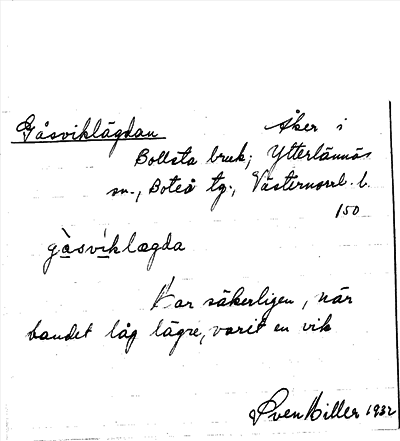 Gåsviklägdan Åker i
Bollsta bruk; Ytterlännäs
sn., Boteå tg., Västernorrl. l.
150
gåsviklægda
Har säkerligen, när
bandet låg lägre, varit en vik
Sven Hiller 1932